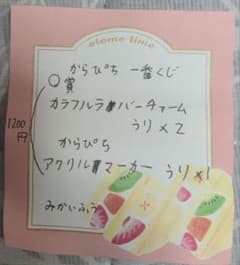 otome time
からぴち 一番くじ
○賞
カラフルラバーチャーム
うり×2
1200
円
からぴち
アクリルマーカー うり×1
みかいふう